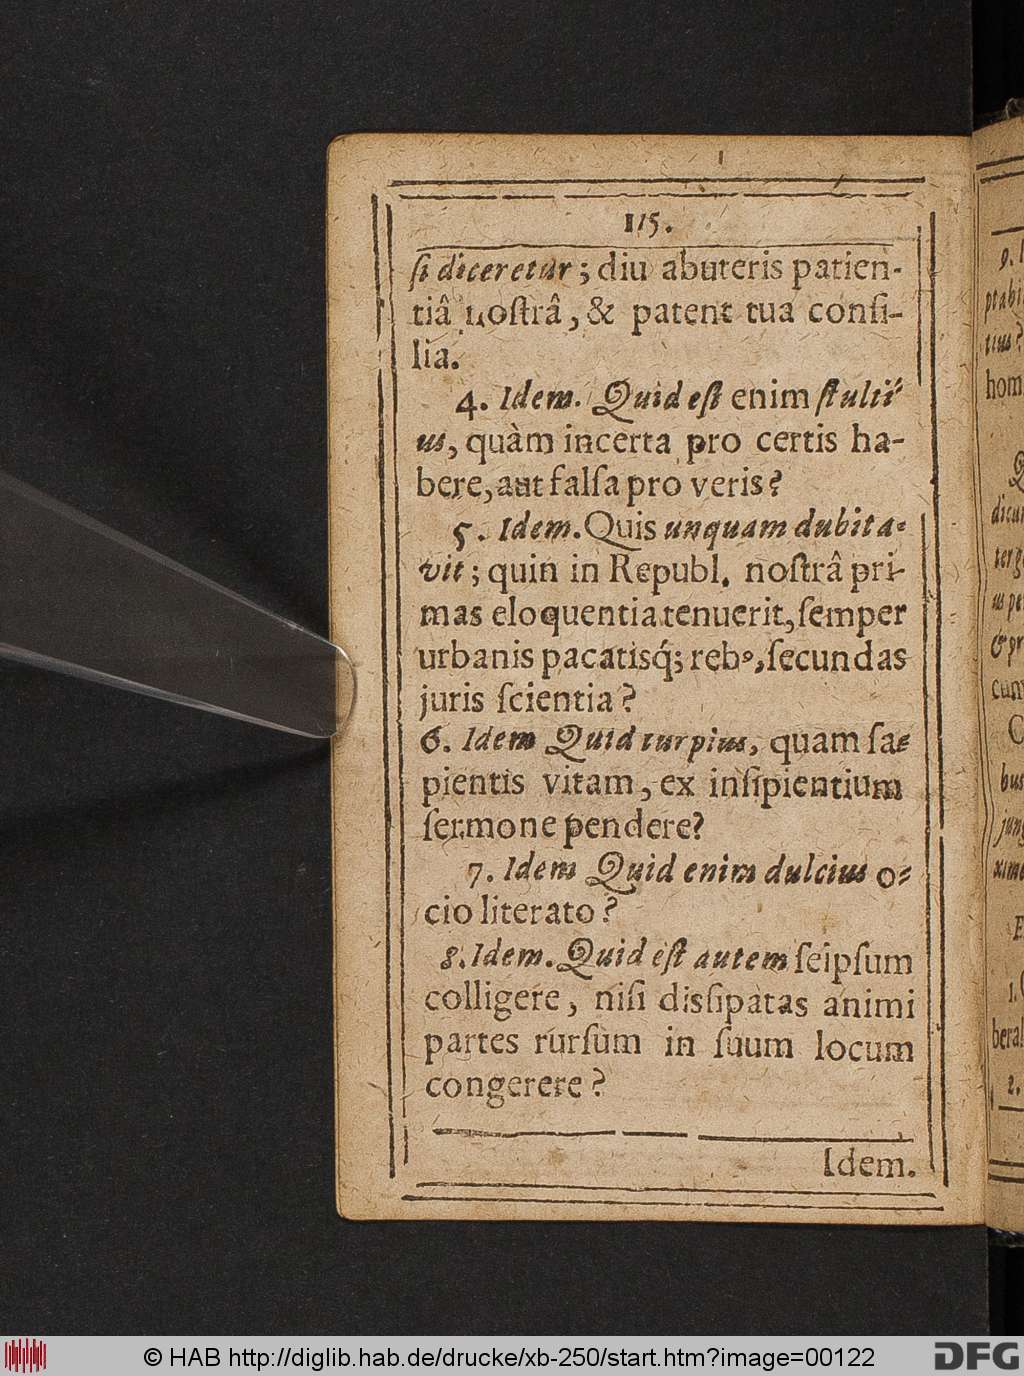 115.
ſi diceretur; diu abuteris patien-
tiâ noſtrâ, & patent tua conſi-
lia.
4. Idem. Quid eſt enim ſtulti
us, quàm incerta pro certis ha-
bere, aut falſa pro veris?
5. Idem. Quis unquam dubita-
vit; quin in Republ. noſtrâ pri-
mas eloquentia tenuerit, ſemper
urbanis pacatisq́; rebꝰ, ſecundas
juris ſcientia?
6. Idem Quid turpius, quam ſa-
pientis vitam, ex inſipientium
ſermone pendere?
7. Idem Quid enim dulcius o-
cio literato?
8. Idem. Quid eſt autem ſeipſum
colligere, niſi dissipatas animi
partes rurſum in ſuum locum
congerere?
Idem.
© HAB http://diglib.hab.de/drucke/xb-250/start.htm?image=00122
DFG